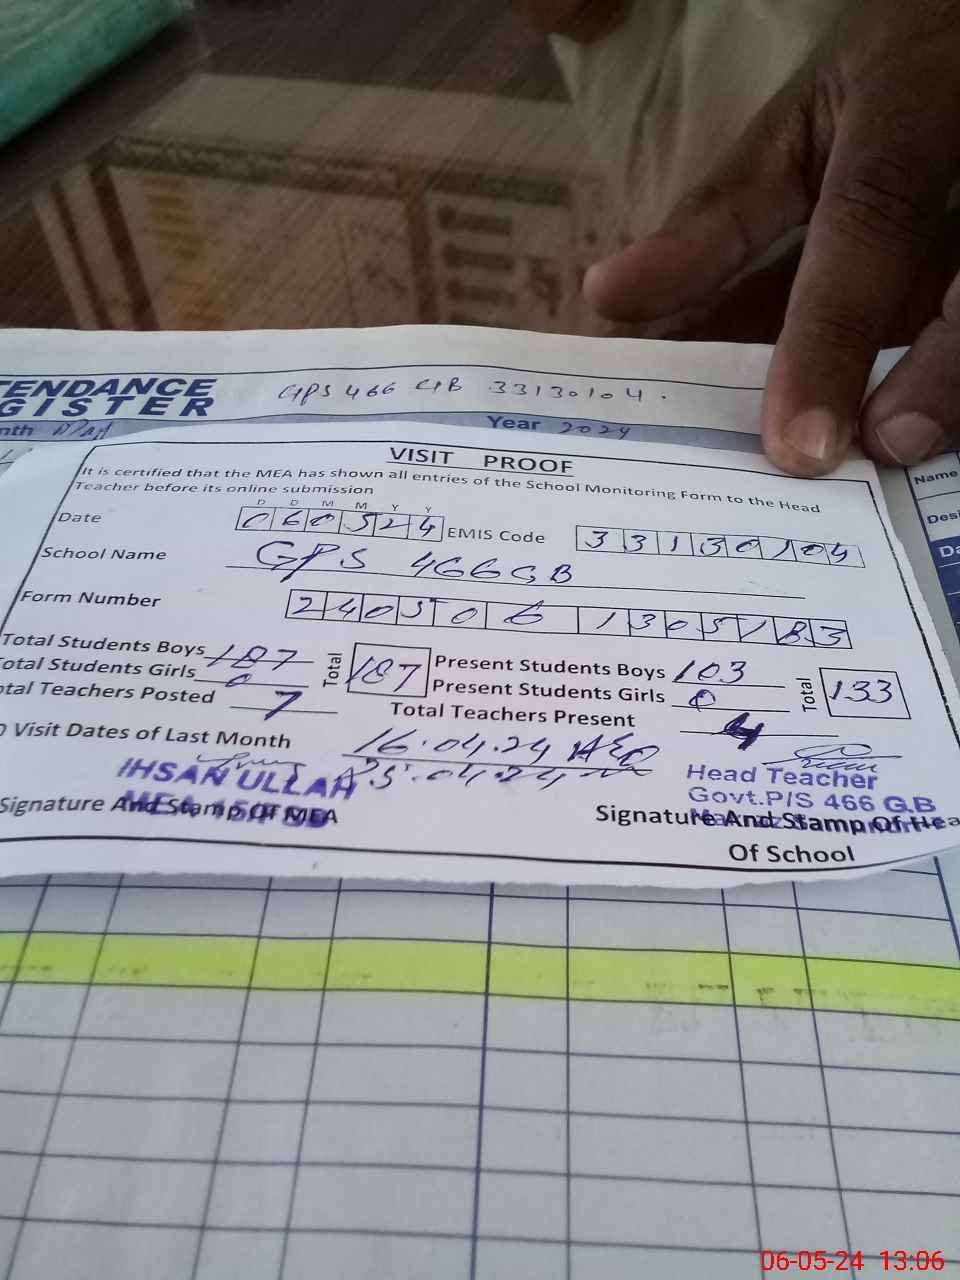 TENDANCE
GISTER
GPS 466 GB 33130104.
nth
Year 2024
VISIT PROOF
It is certified that the MEA has shown all entries of the School Monitoring Form to the Head
Teacher before its online submission
D D M M Y Y
Date 060524 EMIS Code 33130104
School Name GPS 466 GB
Form Number 2405061305183
Total Students Boys 187 Total 187 Present Students Boys 103 Total 133
Total Students Girls 0 Present Students Girls 0
otal Teachers Posted 7 Total Teachers Present 4
Visit Dates of Last Month 16.04.24 AEO
.04.24
IHSAN ULLAH
Signature And Stamp Of MEA
Head Teacher
Govt.P/S 466 G.B
Signature And Stamp Of Hea
Of School
Name
Desi
Da
06-05-24 13:06